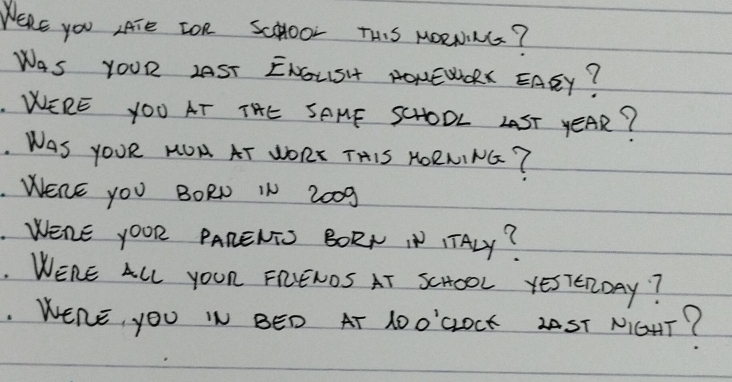 WERE YOU LATE FOR SCHOOL THIS MORNING?
WAS YOUR LAST ENGLISH HOMEWORK EASY?
. WERE YOU AT THE SAME SCHOOL LAST YEAR?
. WAS YOUR MUM AT WORK THIS MORNING?
. WERE YOU BORN IN 2009
. WERE YOUR PARENTS BORN IN ITALY?
. WERE ALL YOUR FRIENDS AT SCHOOL YESTERDAY?
. WERE YOU IN BED AT 10 O'CLOCK LAST NIGHT?